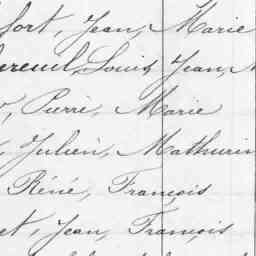 fort, Jean, Marie
ereuil, Louis, Jean,
, Pierre, Marie
, Julien, Mathurin
Réné, François
et, Jean, François